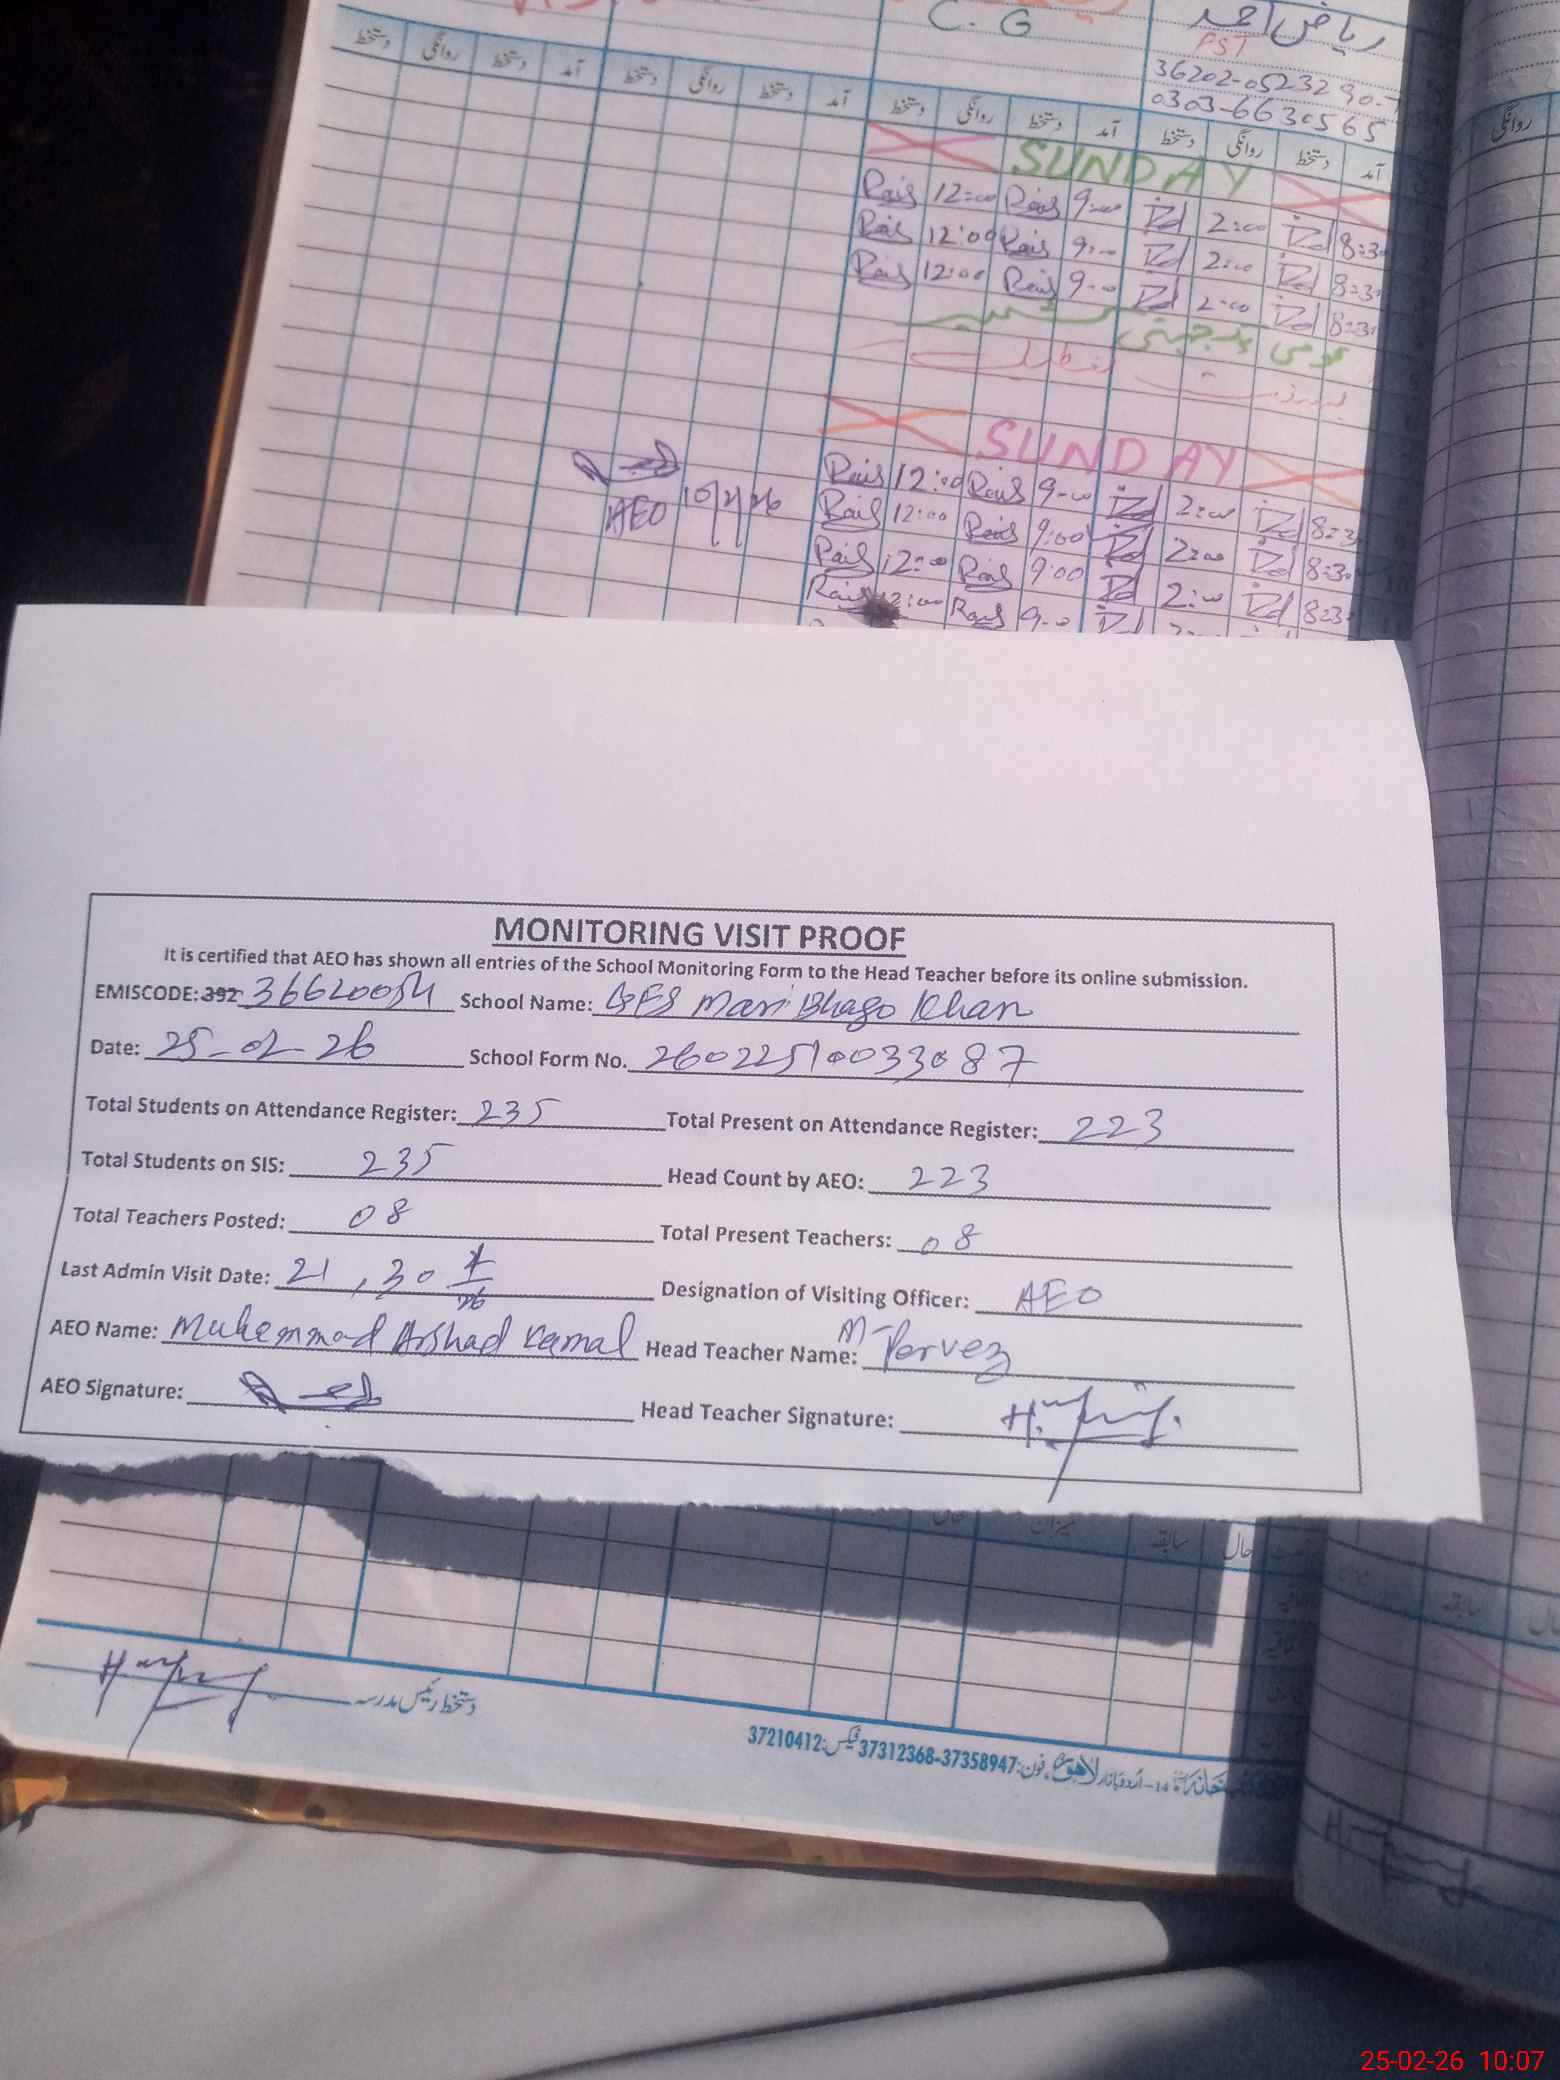 C. G
ریاض احمد
PST
36202-0523290-7
0303-6630565
دستخط روانگی دستخط آمد دستخط روانگی دستخط آمد دستخط روانگی دستخط آمد دستخط روانگی دستخط آمد
روانگی
SUNDAY
Rais 12:00 Rais 9:00 2:00 8:30
Rais 12:00 Rais 9:00 2:00 8:30
Rais 12:00 Rais 9-00 2:00 8:30
قومی یکجہتی کشمیر
بسنت تعطیل
SUNDAY
Rais 12:00 Rais 9-00 2:00 8:30
Rais 12:00 Rais 9:00 2:00 8:30
Rais 12:00 Rais 9:00 2:00 8:30
Rais 12:00 Rais 9-0 2:00 8:30
AEO 10/2/26
MONITORING VISIT PROOF
It is certified that AEO has shown all entries of the School Monitoring Form to the Head Teacher before its online submission.
EMISCODE: 392 36620054 School Name: GES Mari Bhago Khan
Date: 25-02-26 School Form No. 26022510033087
Total Students on Attendance Register: 235 Total Present on Attendance Register: 223
Total Students on SIS: 235 Head Count by AEO: 223
Total Teachers Posted: 08 Total Present Teachers: 08
Last Admin Visit Date: 21, 30 1/26 Designation of Visiting Officer: AEO
AEO Name: Muhammad Arshad Kamal Head Teacher Name: M-Pervez
AEO Signature: Head Teacher Signature:
میزان سابقہ حال
سابقہ
دستخط رئیس مدرسہ
14-اُردو بازار لاہور، فون: 37312368-37358947 فیکس: 37210412
25-02-26 10:07